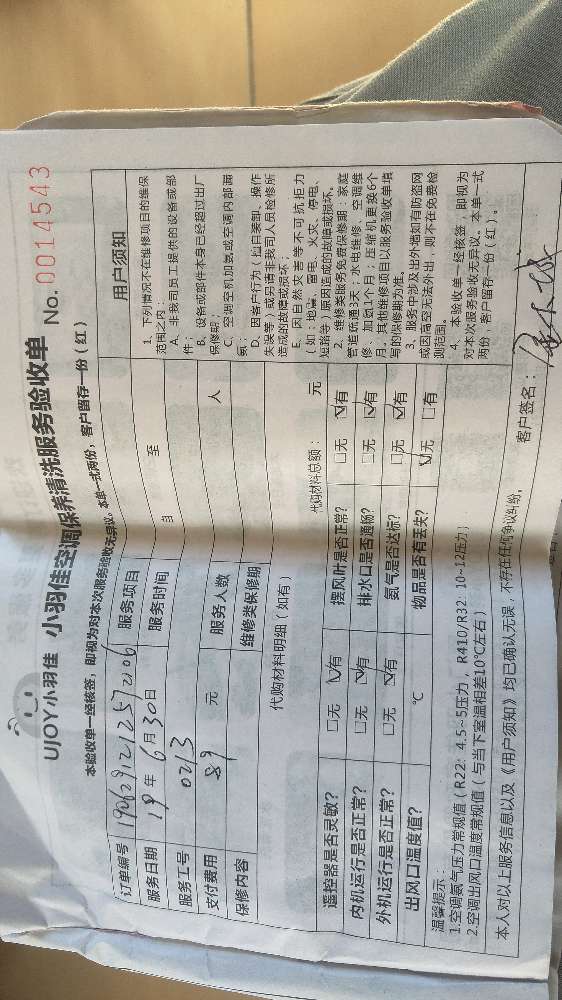 UJOY小羽佳 小羽佳空调保养清洗服务验收单 No. 0014543
本验收单一经核签，即视为对本次服务验收无异议。本单一式两份，客户留存一份（红）
订单编号 190629212572106 服务项目
服务日期 19 年 6 月 30 日 服务时间 自 至
服务工号 0213
支付费用 89 元 服务人数 人
保修内容 维修类保修期
代购材料明细（如有） 代购材料总额： 元
遥控器是否灵敏？ □无 ☑有 摆风叶是否正常？ □无 ☑有
内机运行是否正常？ □无 ☑有 排水口是否通畅？ □无 ☑有
外机运行是否正常？ □无 ☑有 氨气是否达标？ □无 ☑有
出风口温度值？ ℃ 物品是否有丢失？ ☑无 □有
用户须知
1、下列情况不在维修项目的维保
范围之内：
A、非我司员工提供的设备或部
件；
B、设备或部件本身已经超过出厂
保修期；
C、空调空机加氨或空调内部漏
氨；
D、因客户行为（擅自装卸、操作
失误等）或另请非我司人员检修所
造成的故障或损坏；
E、因自然灾害等不可抗拒力
（如：地震、雷电、火灾、停电、
短路等）原因造成的故障或损坏。
2、维修类服务免费保修期：家庭
管道疏通3天；水电维修、空调维
修、加氨1个月；压缩机更换6个
月。其他维修项目以服务验收单填
写的保修期为准。
3、服务中涉及出外墙如有防盗网
或因高空无法外出，则不在免费检
测范围。
4、本验收单一经核签，即视为
对本次服务验收无异议。本单一式
两份，客户留存一份（红）。
温馨提示：
1.空调氨气压力常规值（R22：4.5~5压力，R410/R32：10~12压力）
2.空调出风口温度常规值（与当下室温相差10℃左右）
本人对以上服务信息以及《用户须知》均已确认无误，不存在任何争议纠纷， 客户签名：